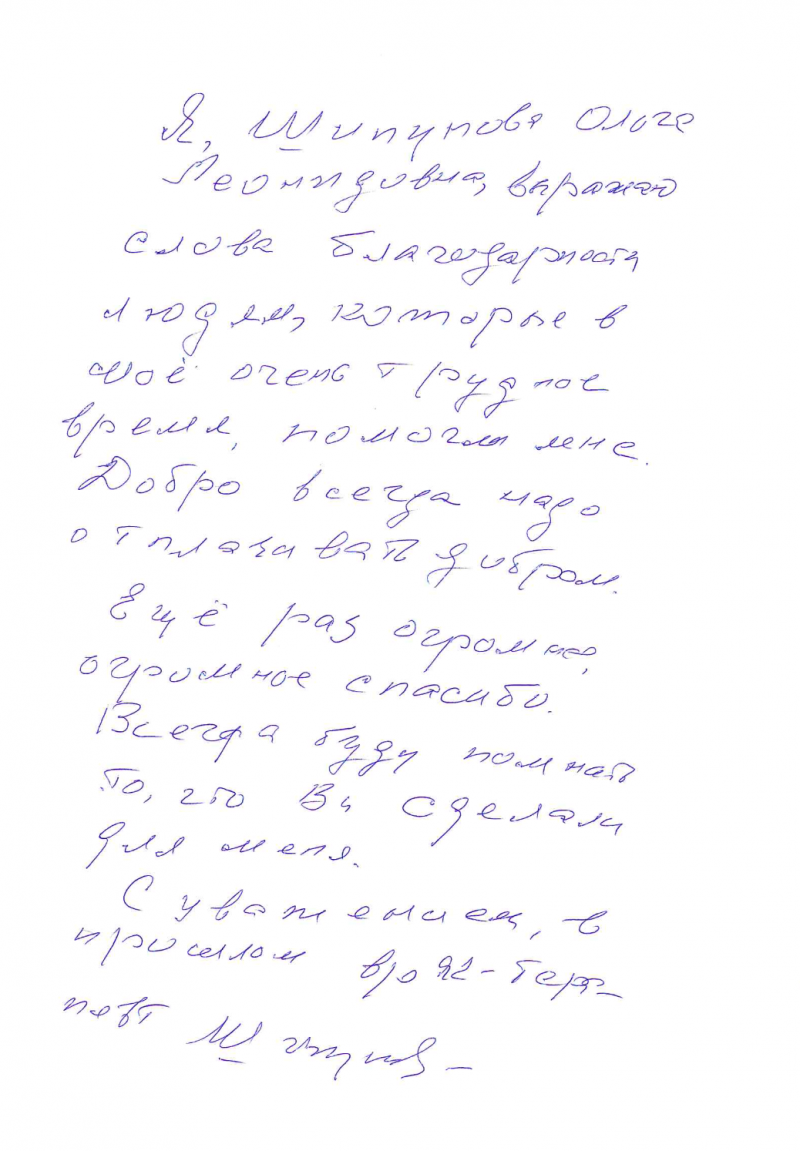 Я, Шипунова Ольга
Леонидовна, выражаю
слова благодарности
людям, которые в
моё очень трудное
время, помогли мне.
Добро всегда надо
отплачивать добром.
Ещё раз огромное,
огромное спасибо.
Всегда буду помнить
то, что Вы сделали
для меня.
С уважением, в
прошлом врач-тера-
певт Шипунов